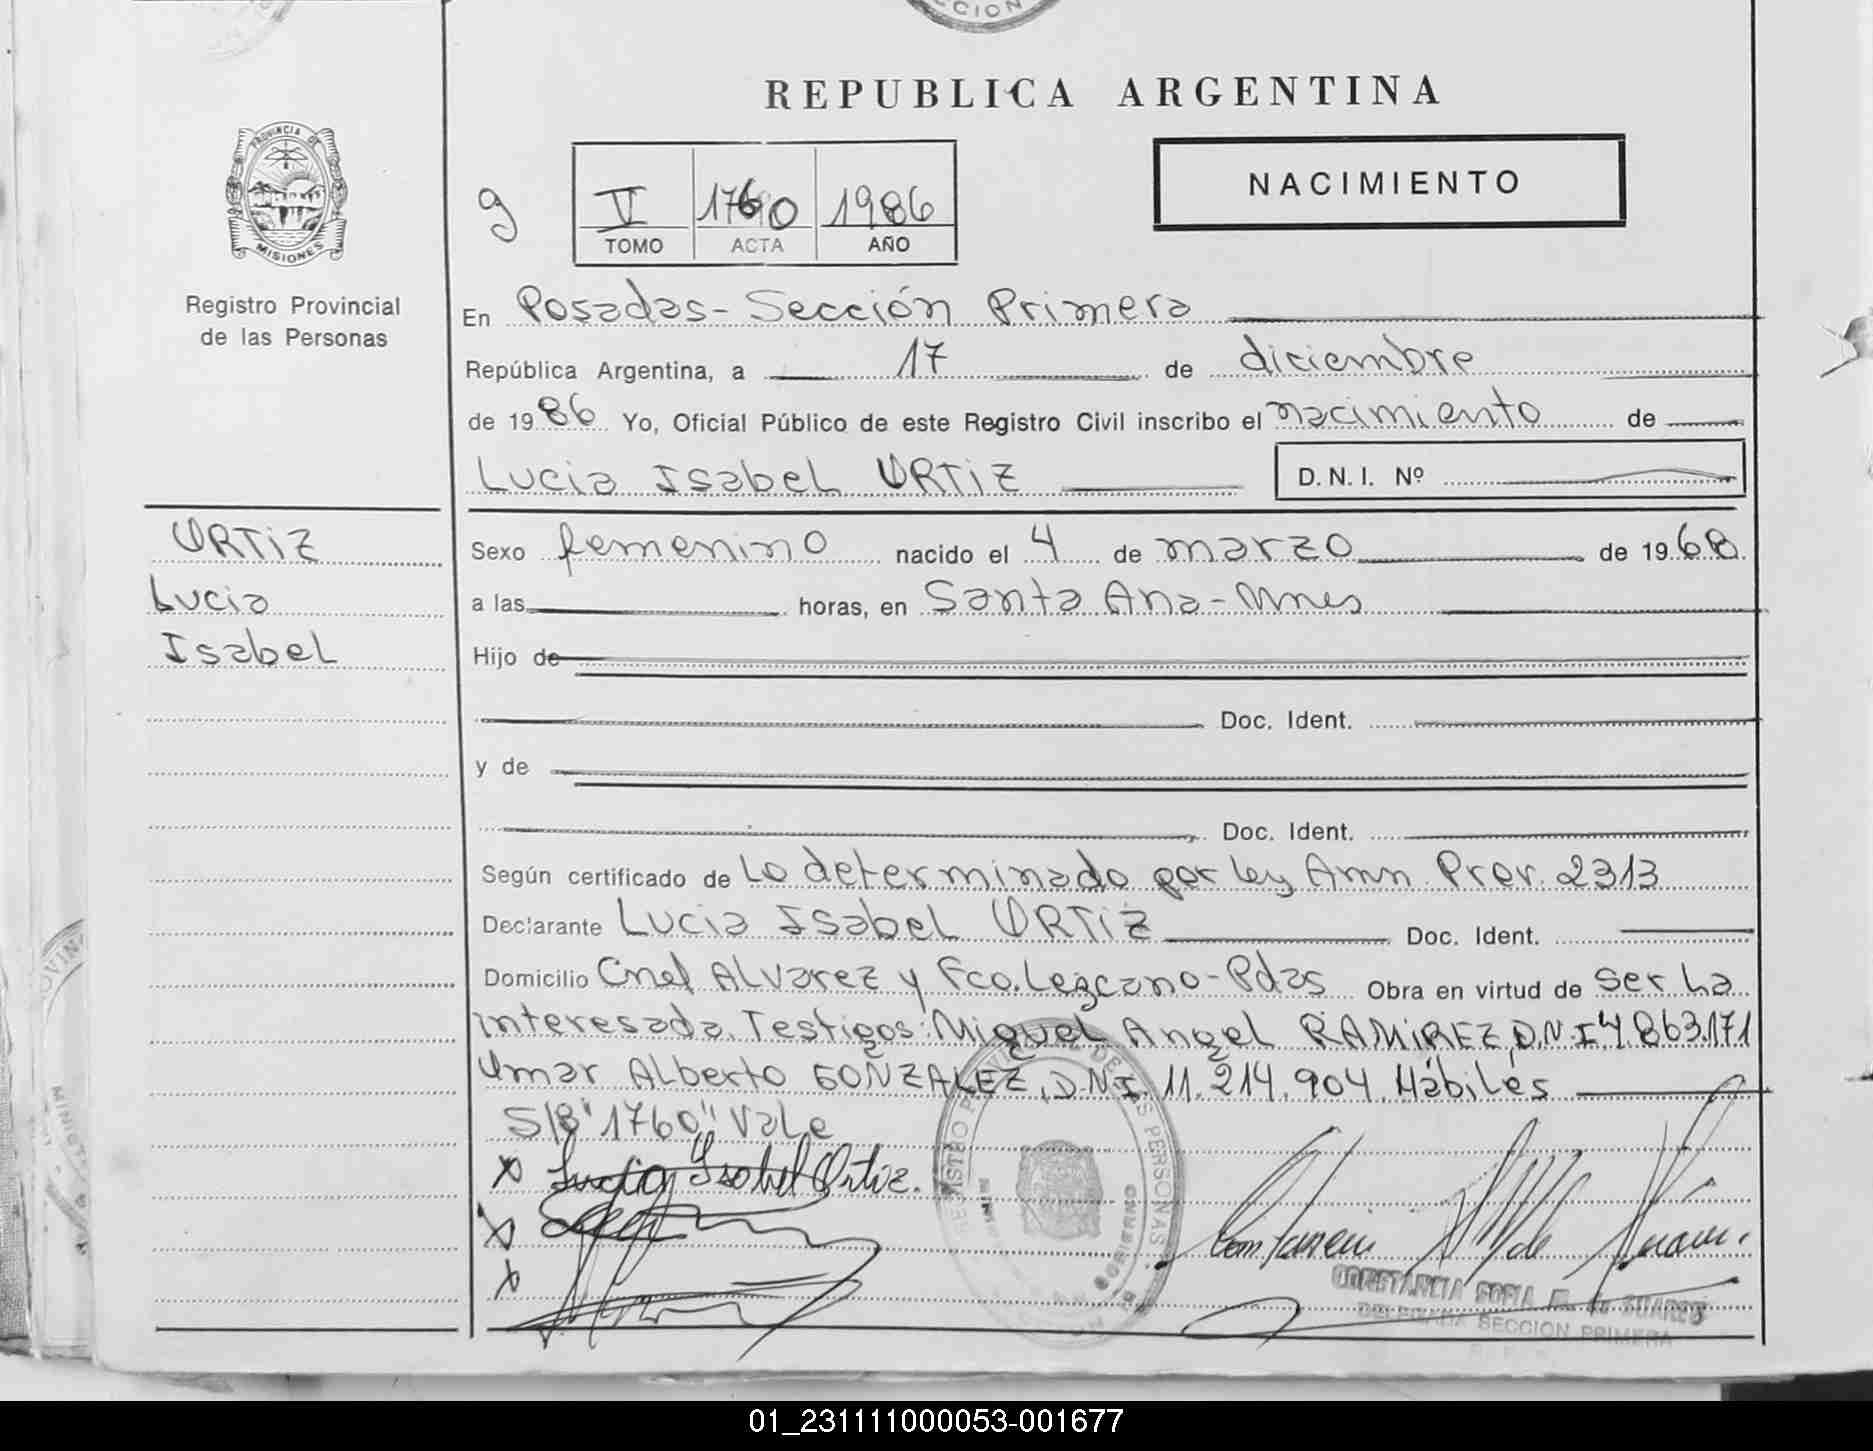 REPUBLICA ARGENTINA
PROVINCIA DE
MISIONES
Registro Provincial
de las Personas
g
V 1760 1986
TOMO ACTA AÑO
NACIMIENTO
En Posadas - Sección Primera
República Argentina, a 17 de diciembre
de 1986 Yo, Oficial Público de este Registro Civil inscribo el nacimiento de
Lucia Isabel ORTIZ D.N.I. Nº
ORTIZ
Lucia
Isabel
Sexo femenino nacido el 4 de marzo de 1968
a las horas, en Santa Ana - Mnes
Hijo de
Doc. Ident.
y de
Doc. Ident.
Según certificado de Lo determinado por ley Amn. Prov. 2313
Declarante Lucia Isabel ORTIZ Doc. Ident.
Domicilio Cnel Alvarez y Fco. Lezcano - Pdas Obra en virtud de ser La
interesada. Testigos: Miguel Angel RAMIREZ, D.N.I 4.863.171
Omar Alberto GONZALEZ, D.N.I. 11.214.904 Hábiles
S/B "1760" Vale
x Lucia Isabel Ortiz.
x
x
REGISTRO PROVINCIAL DE LAS PERSONAS
GOBIERNO
CONSTANCIA SOFIA M. de SUAREZ
DELEGADA SECCION PRIMERA
01_231111000053-001677